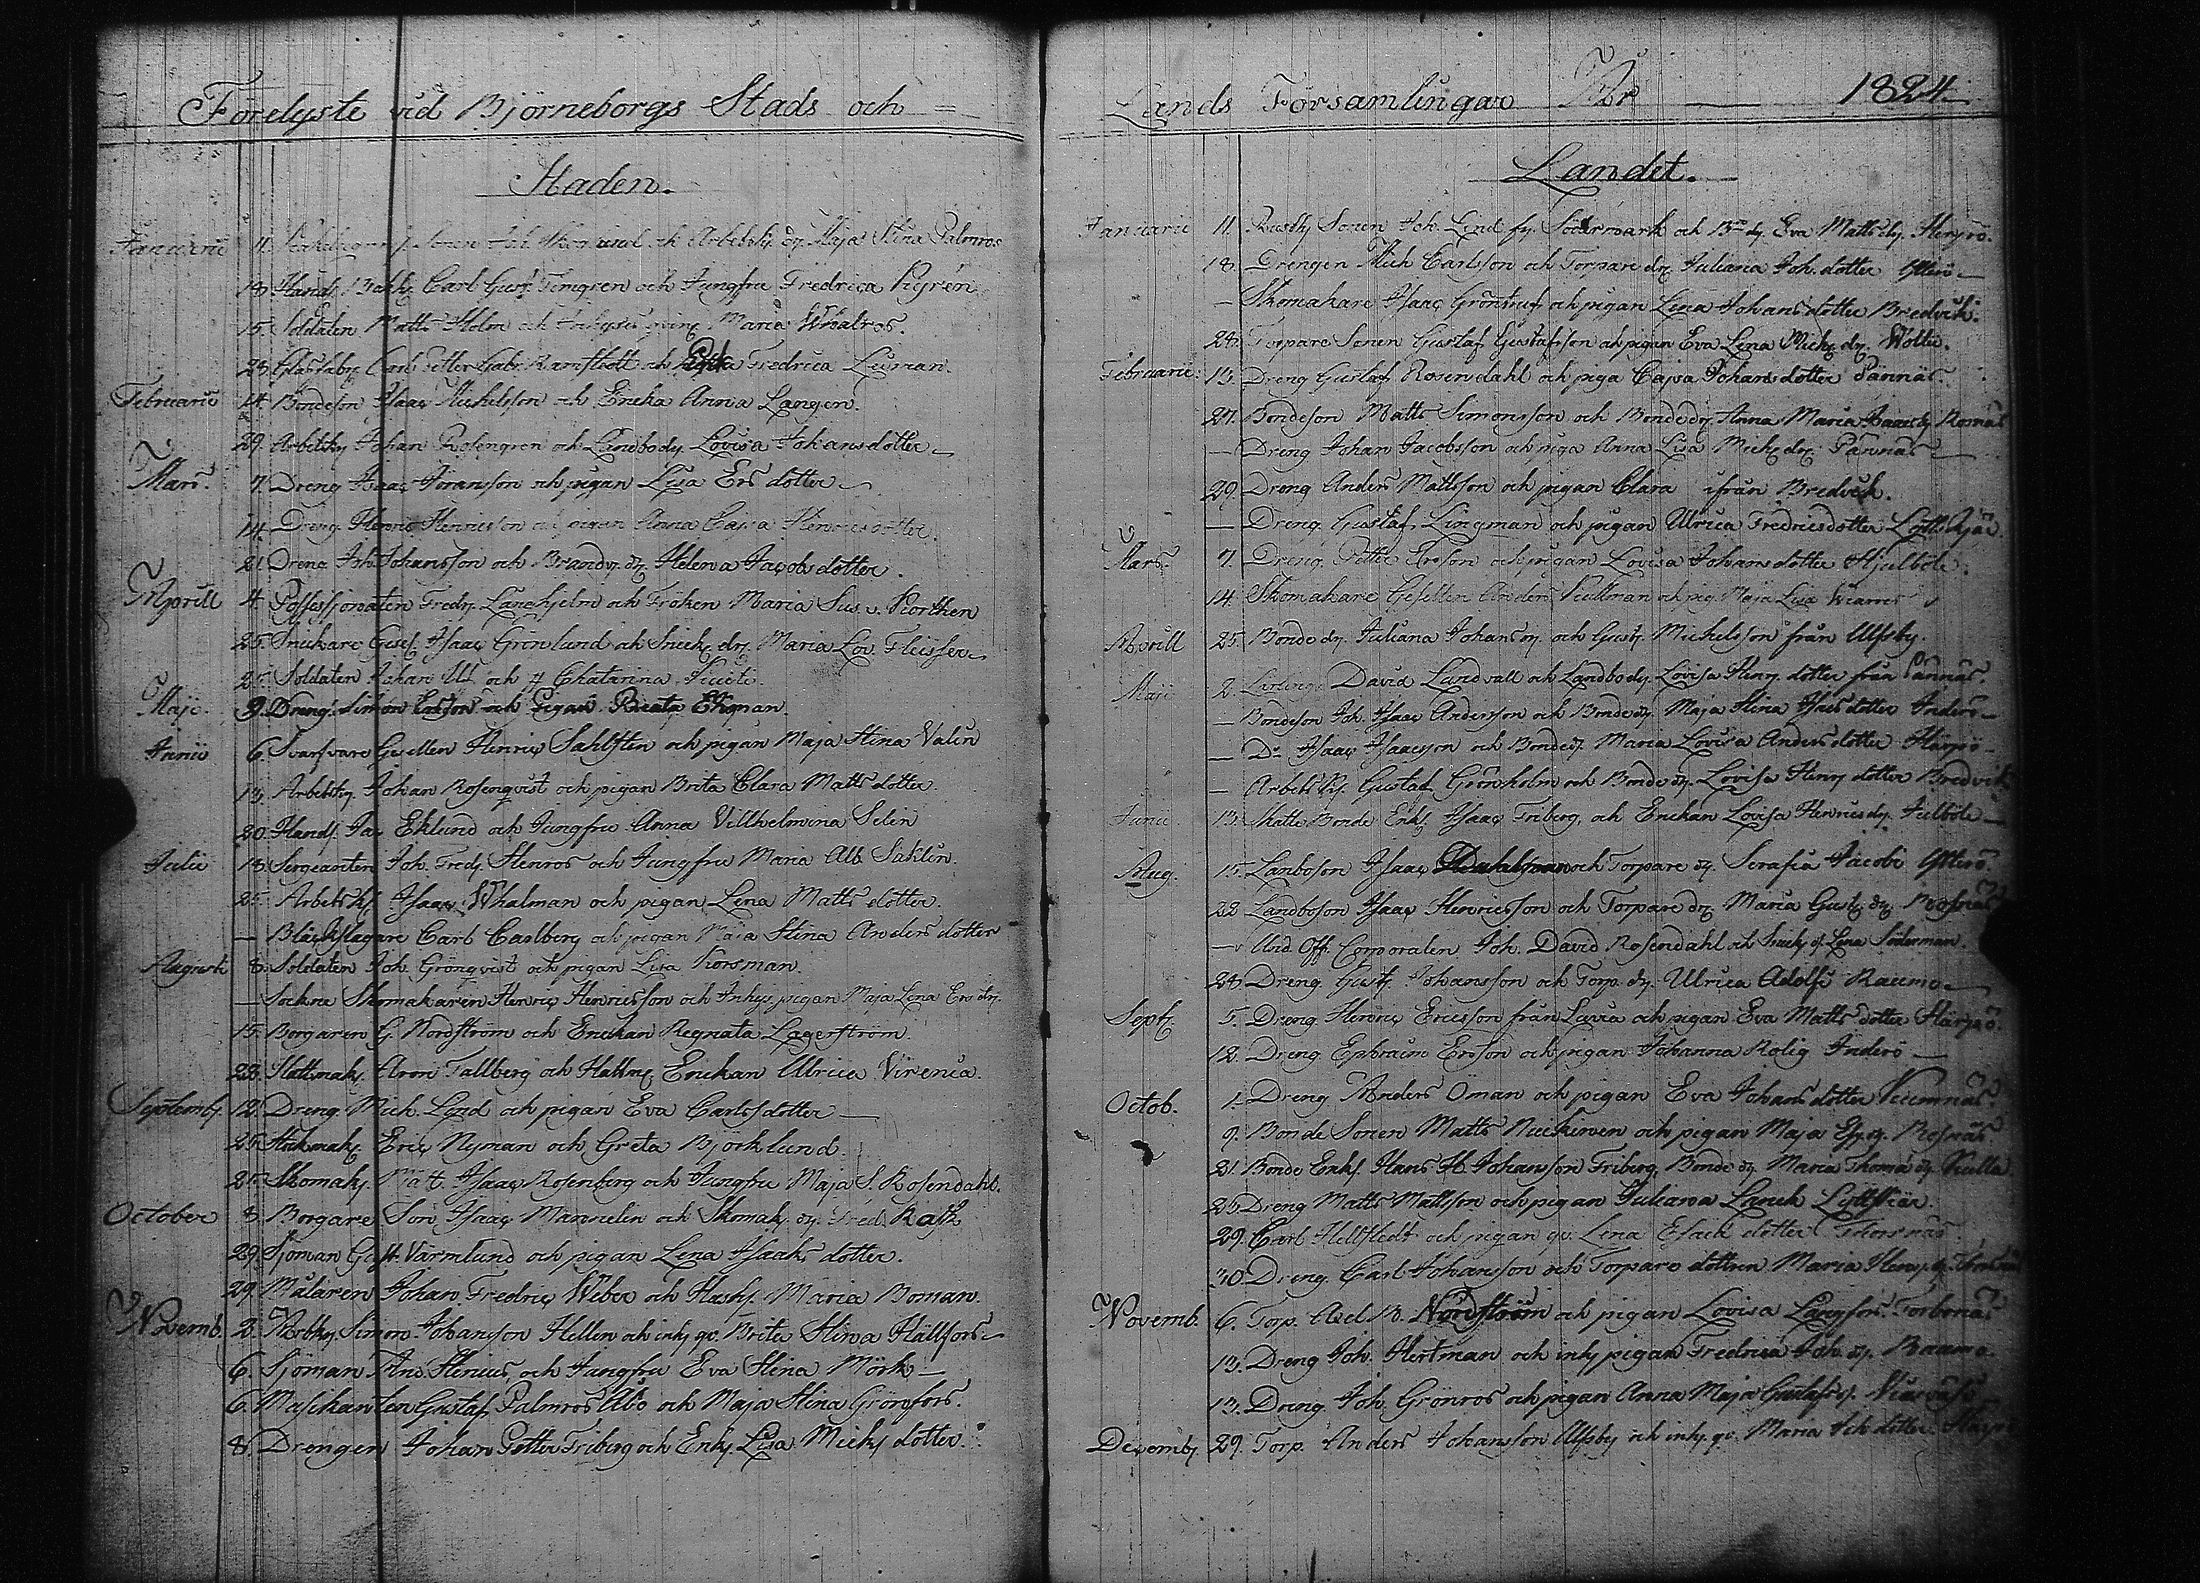 Förelyste vid Björneborgs Stads och
Staden.
Januarii 11. och Arbetsk. dr. Maja Stina Palmros
18. Handl. Carl Gust. Timgren och Jungfru Fredrica Pigrén
15. Soldaten Matts Holm och Maria Whalros.
23. Carl Petter Gabr. Ramstedt och Fredrica Leuman.
Februarii 14. Bondeson Isaac Michelsson och Enckan Anna Langen.
29. Arbetsk. Johan Rosengren och Landbodr. Lovisa Johansdotter
Mars. 7. Dreng Isaac Göransson och pigan Lisa Ersdotter
14. Dreng. Henric Henricsson och pigan Anna Cajsa Henricsdotter.
21. Dreng Joh. Johansson och Brandv. dr. Helena Jacobsdotter.
Aprill 4. Possessionaten Fredr. Lagerhjelm och Fröken Maria Sus. v. Korthen
25. Snickare Gesel. Isaac Grönlund och Snick. dr. Maria Lov. Fleisser
25. Soldaten Johan Ull och Chatarina
Maji. 9. Dreng. Simon Ersson och Pigan Renata Ekman
Junii 6. Svarfvare Gesellen Henric Sahlsten och pigan Maja Stina Valin
13. Arbetsk. Johan Rosenqvist och pigan Brita Clara Mattsdotter
20. Handl. Jac Eklund och Jungfru Anna Villhelmina Selin
Julii 18. Sergeanten Joh. Fredr. Stenros och Jungfru Maria Alb. Saklin.
25. Arbetsk. Isaac Whalman och pigan Lena Mattsdotter.
— Bläckslagare Carl Carlberg och pigan Maja Stina Andersdotter
Augusti 8. Soldaten Joh. Grönqvist och pigan Lisa Korsman.
— Sockne Skomakaren Henric Henricsson och Inhys pigan Maja Lena Ersdr.
15. Borgaren G. Nordström och Enckan Regnata Lagerström
23. Hattmak. Aron Tallberg och Hattm. Enckan Ulrica Virenia.
Septemb. 12. Dreng. Mich. Lind och pigan Eva Carlsdotter —
25. Eric Nyman och Greta Björklund.
25. Skomak. Matt. Isaac Rosenberg och Jungfru Maja S. Rosendahl.
October 8. Borgare Son Isaac Mannelin och Skomak. dr. Fred. Rask
29. Sjöman Gust. Värmlund och pigan Lena Isaaks dotter.
29. Målaren Johan Fredric Weber och Maria Boman.
Novemb. 2. Arbetsk. Simon Johansson Hellen och inh. qv. Brita Stina Hällfors
6. Sjöman And. Stenius och Jungfru Eva Stina Mörk —
6. Musikanten Gustaf Palmros Åbo och Maja Stina Grönfors.
8. Drengen Johan Petter Friberg och Enk. Lisa Mich. dotter.
Lands Församlingar År 1824.
Landet.
Januarii 11. Rusth. Sonen Joh. Lind fr. Södermark och B:de dr. Eva Mattsdr. Herpö.
18. Drengen Mich Carlsson och Torpare dr. Juliana Joh. dotter Ytterö
— Skomakare Isaac Grönstruf och pigan Lisa Johansdotter Bredvik.
24. Torpare Sonen Gustaf Gustafsson och pigan Eva Lena Mich. dr. Wottu.
Februarii: 13. Dreng Gustaf Rosendahl och piga Cajsa Johansdotter Pännäs.
27. Bondeson Matts Simonsson och Bondedr. Anna Maria Isaacsdr. Rosnäs
— Dreng Johan Jacobsson och piga Anna Lisa Mich. dr. Pännäs —
29. Dreng Anders Mattsson och pigan Clara ifrån Bredvik.
— Dreng. Gustaf Lingman och pigan Ulrica Fredricsdotter Lyttskjär
Mars. 7. Dreng. Petter Ersson och pigan Lovisa Johansdotter Hjulböle.
14. Skomakare Gesellen Anders Kullman och pig. Maja Lisa
Aprill 25. Bonde dr. Juliana Johansdr. och Gust. Michelsson från Ulfsby.
Maji 2. David Lundvall och Landbodr. Lovisa Henr. dotter från Pännäs.
— Bondeson Joh. Isaac Andersson och Bondedr. Maja Stina Isacsdotter Inderö —
— D:o Isaac Isaacsson och Bondedr. Maria Lovisa Andersdotter Härpö —
— Arbetsk. Gustaf Grönholm och Bondedr. Lovisa Henr. dotter Bredvik
Junii. 13. Skatte Bonde Enkl. Isaac Friberg och Enckan Lovisa Henricsdr. Julböle —
Aug. 15. Lanboson Isaac och Torpare dr. Serafia Jacobi Ytterö
22. Landboson Isaac Henricsson och Torpare dr. Maria Gust. dr. Rosnäs
— Und. Off. Corporalen Joh. David Rosendahl och Lena Söderman
24. Dreng Gust. Johansson och Torp. dr. Ulrica Adolfi Raumo —
Sept. 5. Dreng Henric Ericsson från Luvia och pigan Eva Mattsdotter Härpö.
12. Dreng Ephraim Ersson och pigan Johanna Rolig Inderö —
Octob. 1. Dreng Anders Öman och pigan Eva Johansdotter Kumnäs
9. Bonde Sonen Matts och pigan Maja Rosnäs
21. Bonde Enkl. Hans H. Johansson Friberg, Bonde dr. Maria Thomä dr. Kulla
25. Dreng Matts Mattsson och pigan Juliana Lanck Lyttskiär.
29. Carl Hellstedt och pigan qv. Lena Esaick dotter Thorsnäs
30. Dreng. Carl Johansson och Torpare dottren Maria Henr. dr.
Novemb. 6. Torp. Axel B. Nordström och pigan Lovisa Långfors. Torbonäs
13. Dreng Joh. Hertman och inh. pigan Fredrica Joh. dr. Raumo.
13. Dreng. Joh. Grönros och pigan Anna Maja Gustafsdr.
Decemb. 29. Torp. Anders Johansson Ulfsby och inh. qv. Maria Joh dotter.